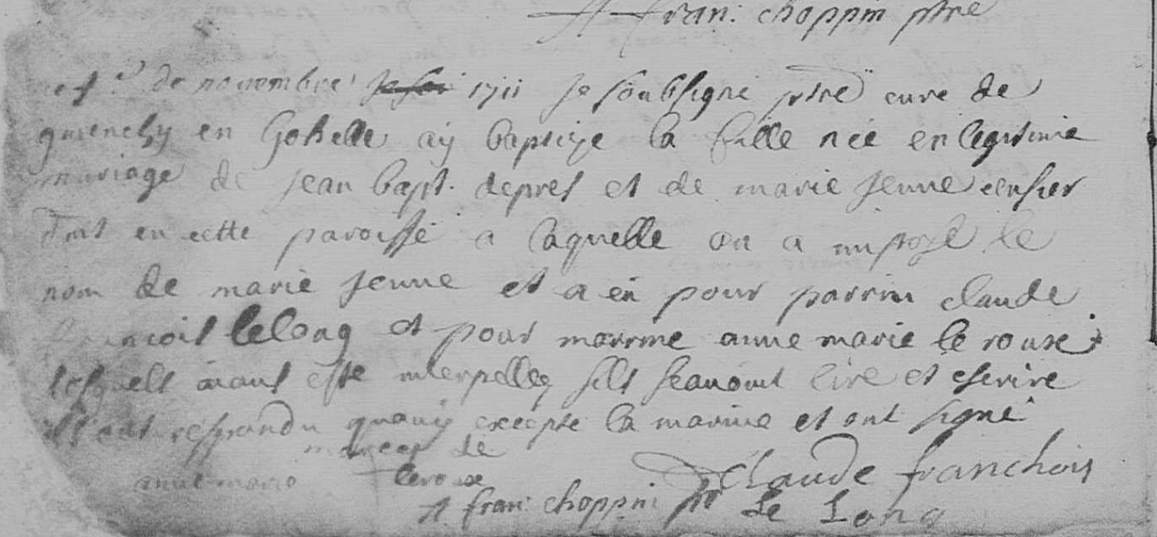 A fran: choppin ptre
de novembre 1711 Je soubsigne ptre cure de
quienchy en Gohelle aÿ baptize la fille neé en legitime
mariage de jean bapt. depres et de marie jenne censier
en cette paroisse a laquelle on a impose le
nom de marie jenne et a eü pour parrin claude
francois lelong et pour marine anne marie le roux
lesquels aiant esté interpelles sils scauoint lire et escrire
ils ont respondu quouy excepte la marine et ont signé
marcq de
anne marie leroux
Claude franchois
A fran: choppin ptr Le Long